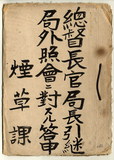 總督長官局長引継
局外照會ニ對スル答申
煙草課